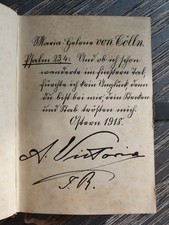 Maria Helene von Cölln.
Psalm 23,4: Und ob ich schon
wanderte im finstern Tal,
fürchte ich kein Unglück, denn
du bist bei mir, dein Stecken
und Stab trösten mich.
Ostern 1915.
A. Victoria
I. R.